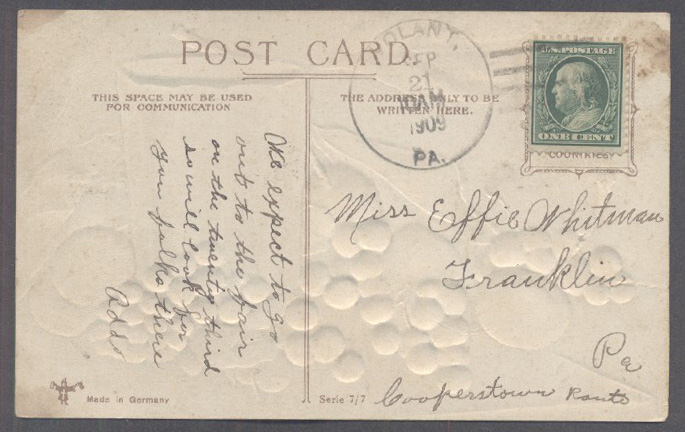 POST CARD.
THIS SPACE MAY BE USED
FOR COMMUNICATION
THE ADDRESS ONLY TO BE
WRITTEN HERE.
OLANT,
SEP
21
10AM
1909
PA.
U.S. POSTAGE
ONE CENT
We expect to go
out to the fair
on the twenty third
so will look for
you folks there
Miss Effie Whitman
Franklin
Pa
Cooperstown Route
Made in Germany
Serie 7/7